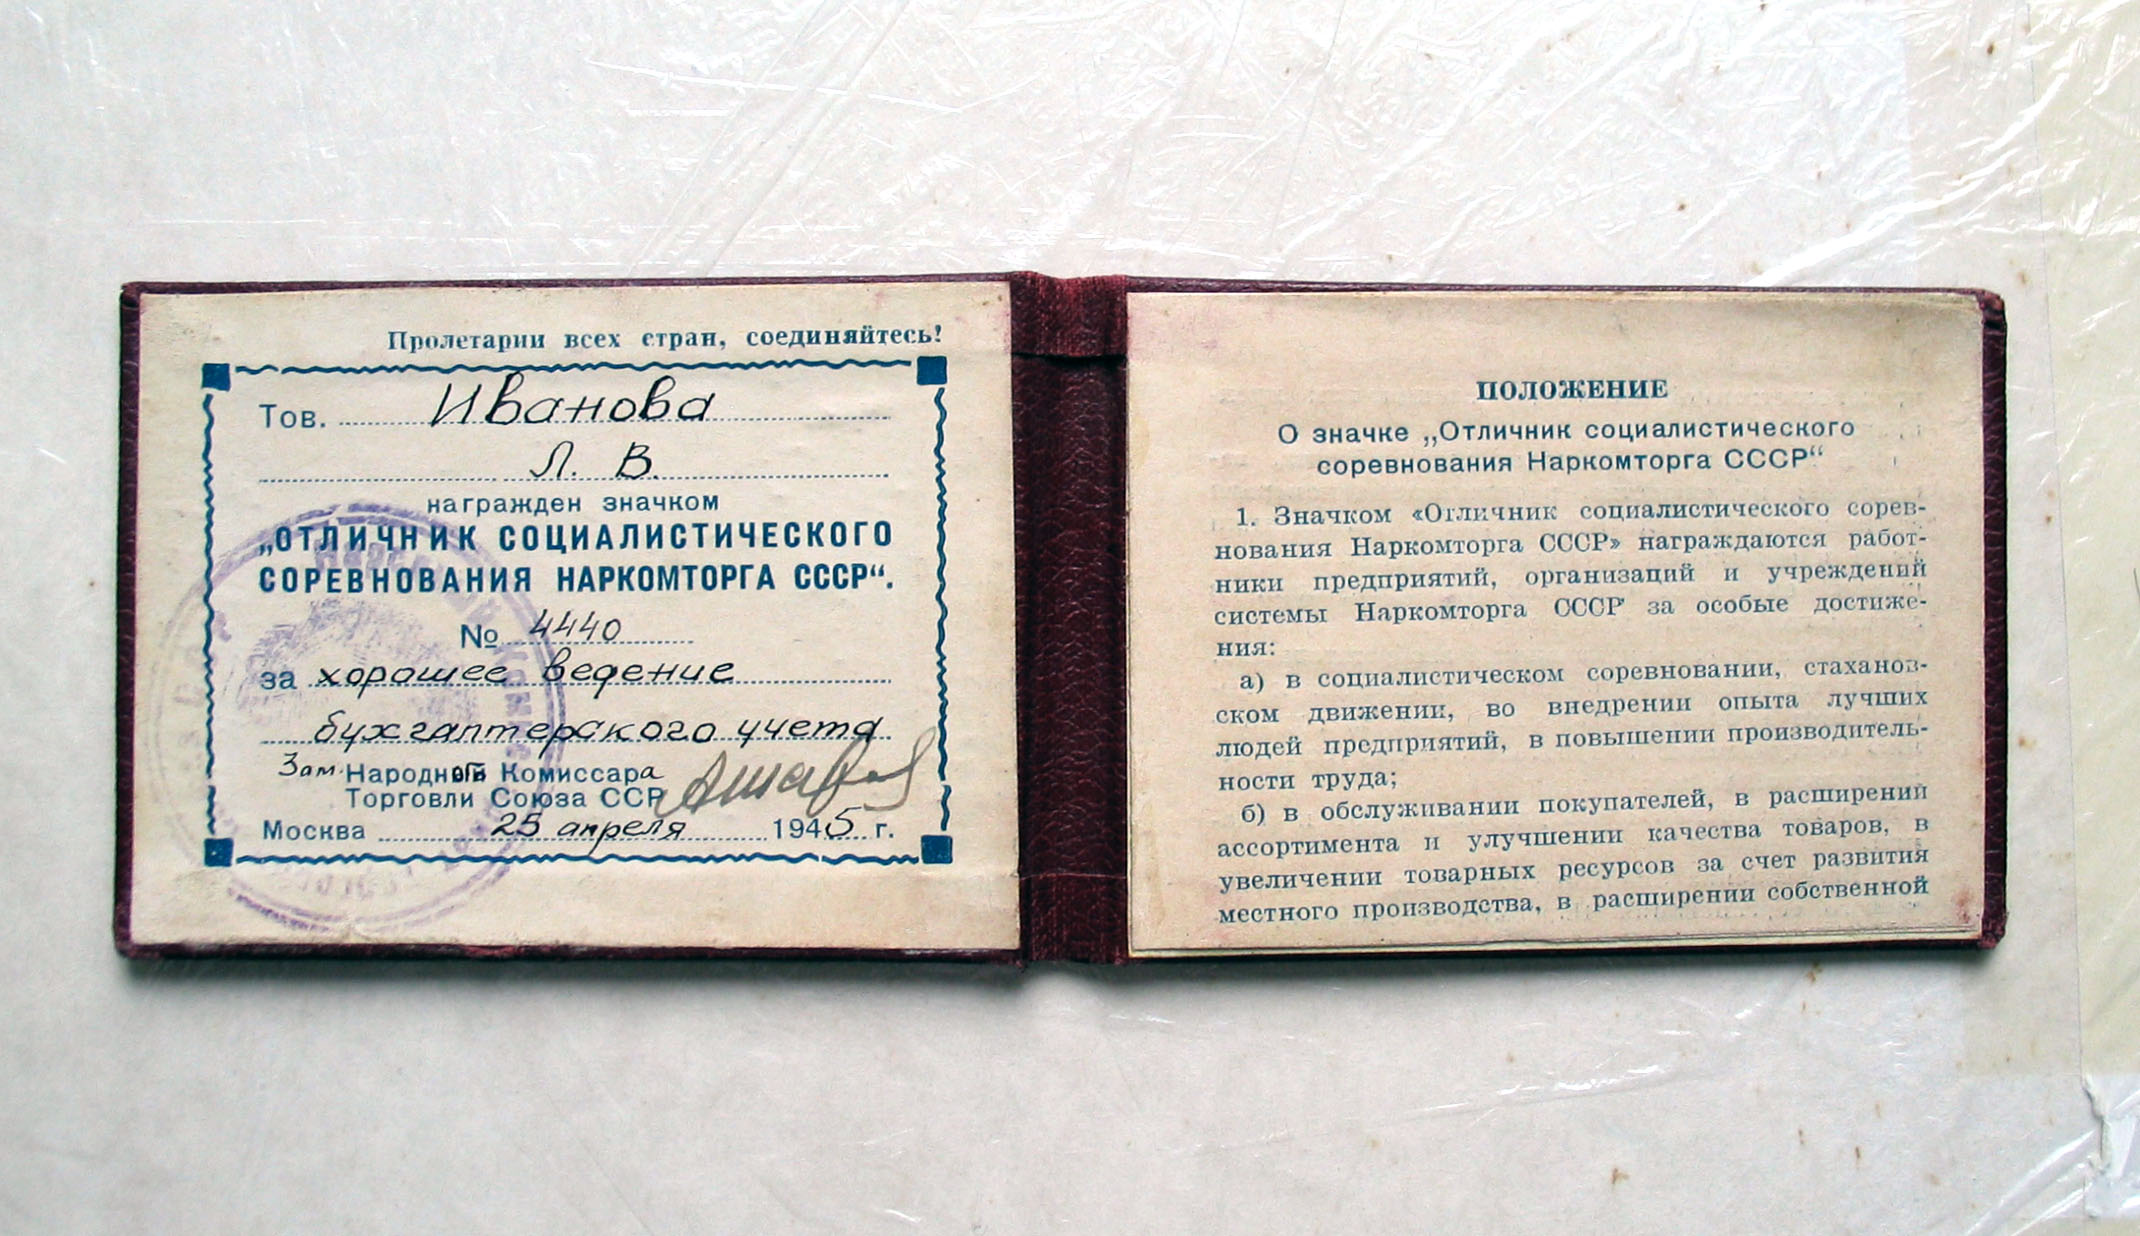 Пролетарии всех стран, соединяйтесь!
Тов. Иванова
Л. В.
награжден значком
„ОТЛИЧНИК СОЦИАЛИСТИЧЕСКОГО
СОРЕВНОВАНИЯ НАРКОМТОРГА СССР“.
№ 4440
за хорошее ведение
бухгалтерского учета
Зам. Народный Комиссара
Торговли Союза ССР
Москва 25 апреля 1945 г.
ПОЛОЖЕНИЕ
О значке „Отличник социалистического
соревнования Наркомторга СССР“
1. Значком «Отличник социалистического сорев-
нования Наркомторга СССР» награждаются работ-
ники предприятий, организаций и учреждений
системы Наркомторга СССР за особые достиже-
ния:
а) в социалистическом соревновании, стаханов-
ском движении, во внедрении опыта лучших
людей предприятий, в повышении производитель-
ности труда;
б) в обслуживании покупателей, в расширений
ассортимента и улучшении качества товаров, в
увеличении товарных ресурсов за счет развития
местного производства, в расширении собственной